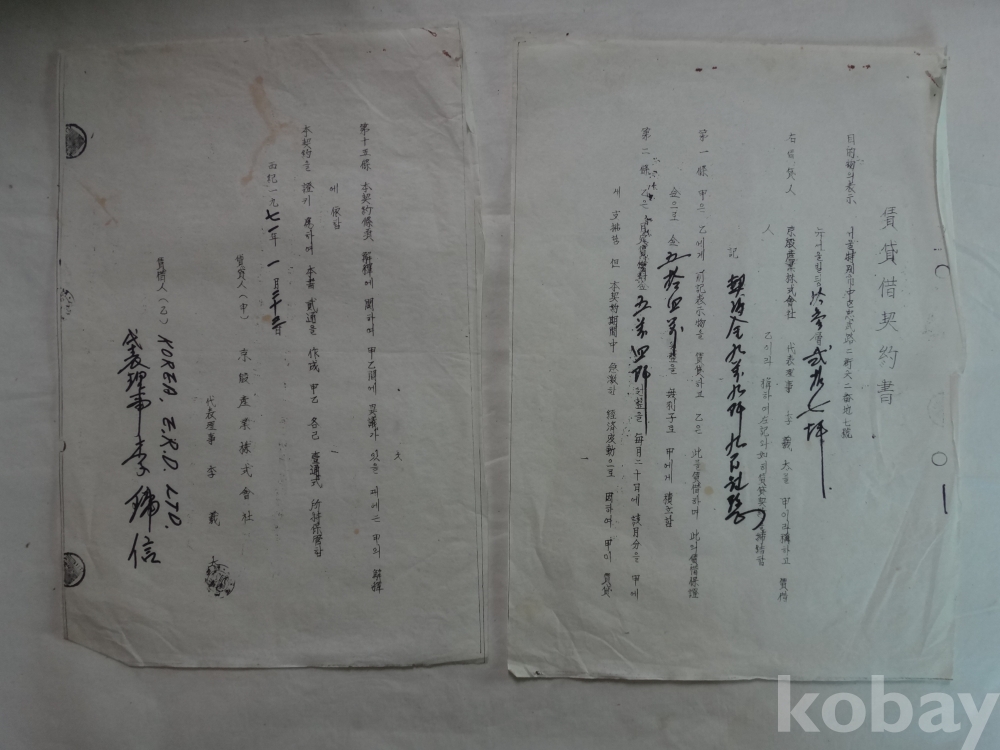 賃貸借契約書
目的物의表示 서울特別市中區忠武路二街六二番地七號
뉴서울빌딩 層 弍拾七坪
右賃貸人 京殷産業株式會社 代表理事 李義 을 甲이라稱하고 賃借
人 乙이라 稱하여左記와如히賃貸契約 締結함
記
第一條 甲은 乙에게 前記表示物을 賃貸하고 乙은 此를賃借하며 此의賃借保證
金으로 金五拾四萬 無利子로 甲에게 積立함
第二條 乙은 金五萬四阡 을 每月二十日에 該月分을 甲에
게 支拂함 但 本契約期間中 急激한 經濟波動으로 因하여 甲이 賃貸
一
第十五條 本契約條文 解釋에 關하여 甲乙間에 異議가 있을 때에는 甲의 解釋
에 依함
本契約을 證키 爲하여 本書 貳通을 作成 甲乙 各己 壹通式 所持保管함
西紀一九七一年 一月二十 日
賃貸人(甲) 京殷産業株式會社
代表理事 李義
賃借人(乙) KOREA, E.R.D. LTD.
代表理事 李 信
kobay